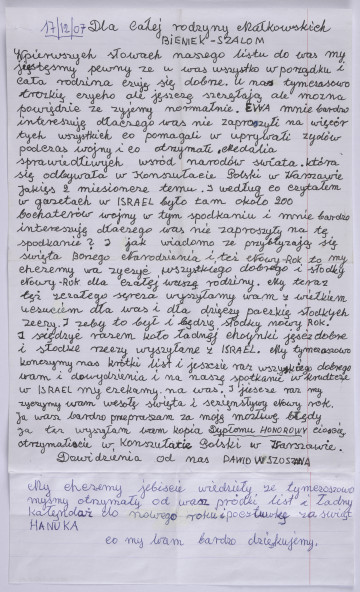 17/12/07 Dla całej rodzyny Małkowskich
BIENIEK-SZALOM
W pierwszych słowach naszego listu do was my
jestesmy pewny ze u was wszystko w porządku i
cała rodzina czują się dobrze. U nas tymczasowo
troszkię cięzko ale jeszcze
powiędzic ze zyjemy normalnie. EWA mnie bardzo
interesują dlaczego was nie zaprosyli na więczór
tych wszystkich co pomagali w żydów
podczas wojny i co otrzymałe Medalia
sprawiedliwych wśród narodów świata. która
się odbywała w Konsultacie Polski w Warszawie
Jakięs 2 miesionce temu. I według co czytalem
w gazetach w ISRAEL było tam około 200
bochaterów wojny w tym spodkaniu i mnie bardzo
interesują dlaczego was nie zaprosyly na tę
spodkanie? I jak wiadomo ze przyblyzają się
święta Bozego Narodzenia i tez Nowy-Rok to my
chcemy wa zyczyc wszystkiego dobrego i słodky
Nowy-Rok dla całej waszą rodziny. My teraz
tez zcałego serca wysyłamy wam z wielkiem
uesuciem dla was i dla dzięcy paczkię słodkych
rzeczy. I zeby to był i będzię słodky nowy Rok.
I siędzyc razem koło ładnej choynki jesc dobre
i słodkie rzeczy wysyłane z ISRAEL. My tymczasowo
konczymy nas krótki list i jeszcie raz wszystkiego dobrego
wam i dowydzenia i na naszę spotkanie w
w ISRAEL my czekamy na was. I jeszcze raz my
zyczymy wam wesołę święta i sczęnstlywy Nowy rok.
Ja was bardzo przepraszam za moją możliwe błędy
Ja tez wysyłam wam kopia Dyplomu HONOROWY
otrzymaliście w Konsultacie Polski w Warszawie.
Dowidzenia od nas DAWID WSZOSZNA
My chcemy jebiscie wiedziely ze tymczosowo
myśmy otrzymaly od was krótki list i ładny
kalendaz do nowego roku i pocztuwkę za świąt
HANUKA
co my wam bardzo dziękujemy.